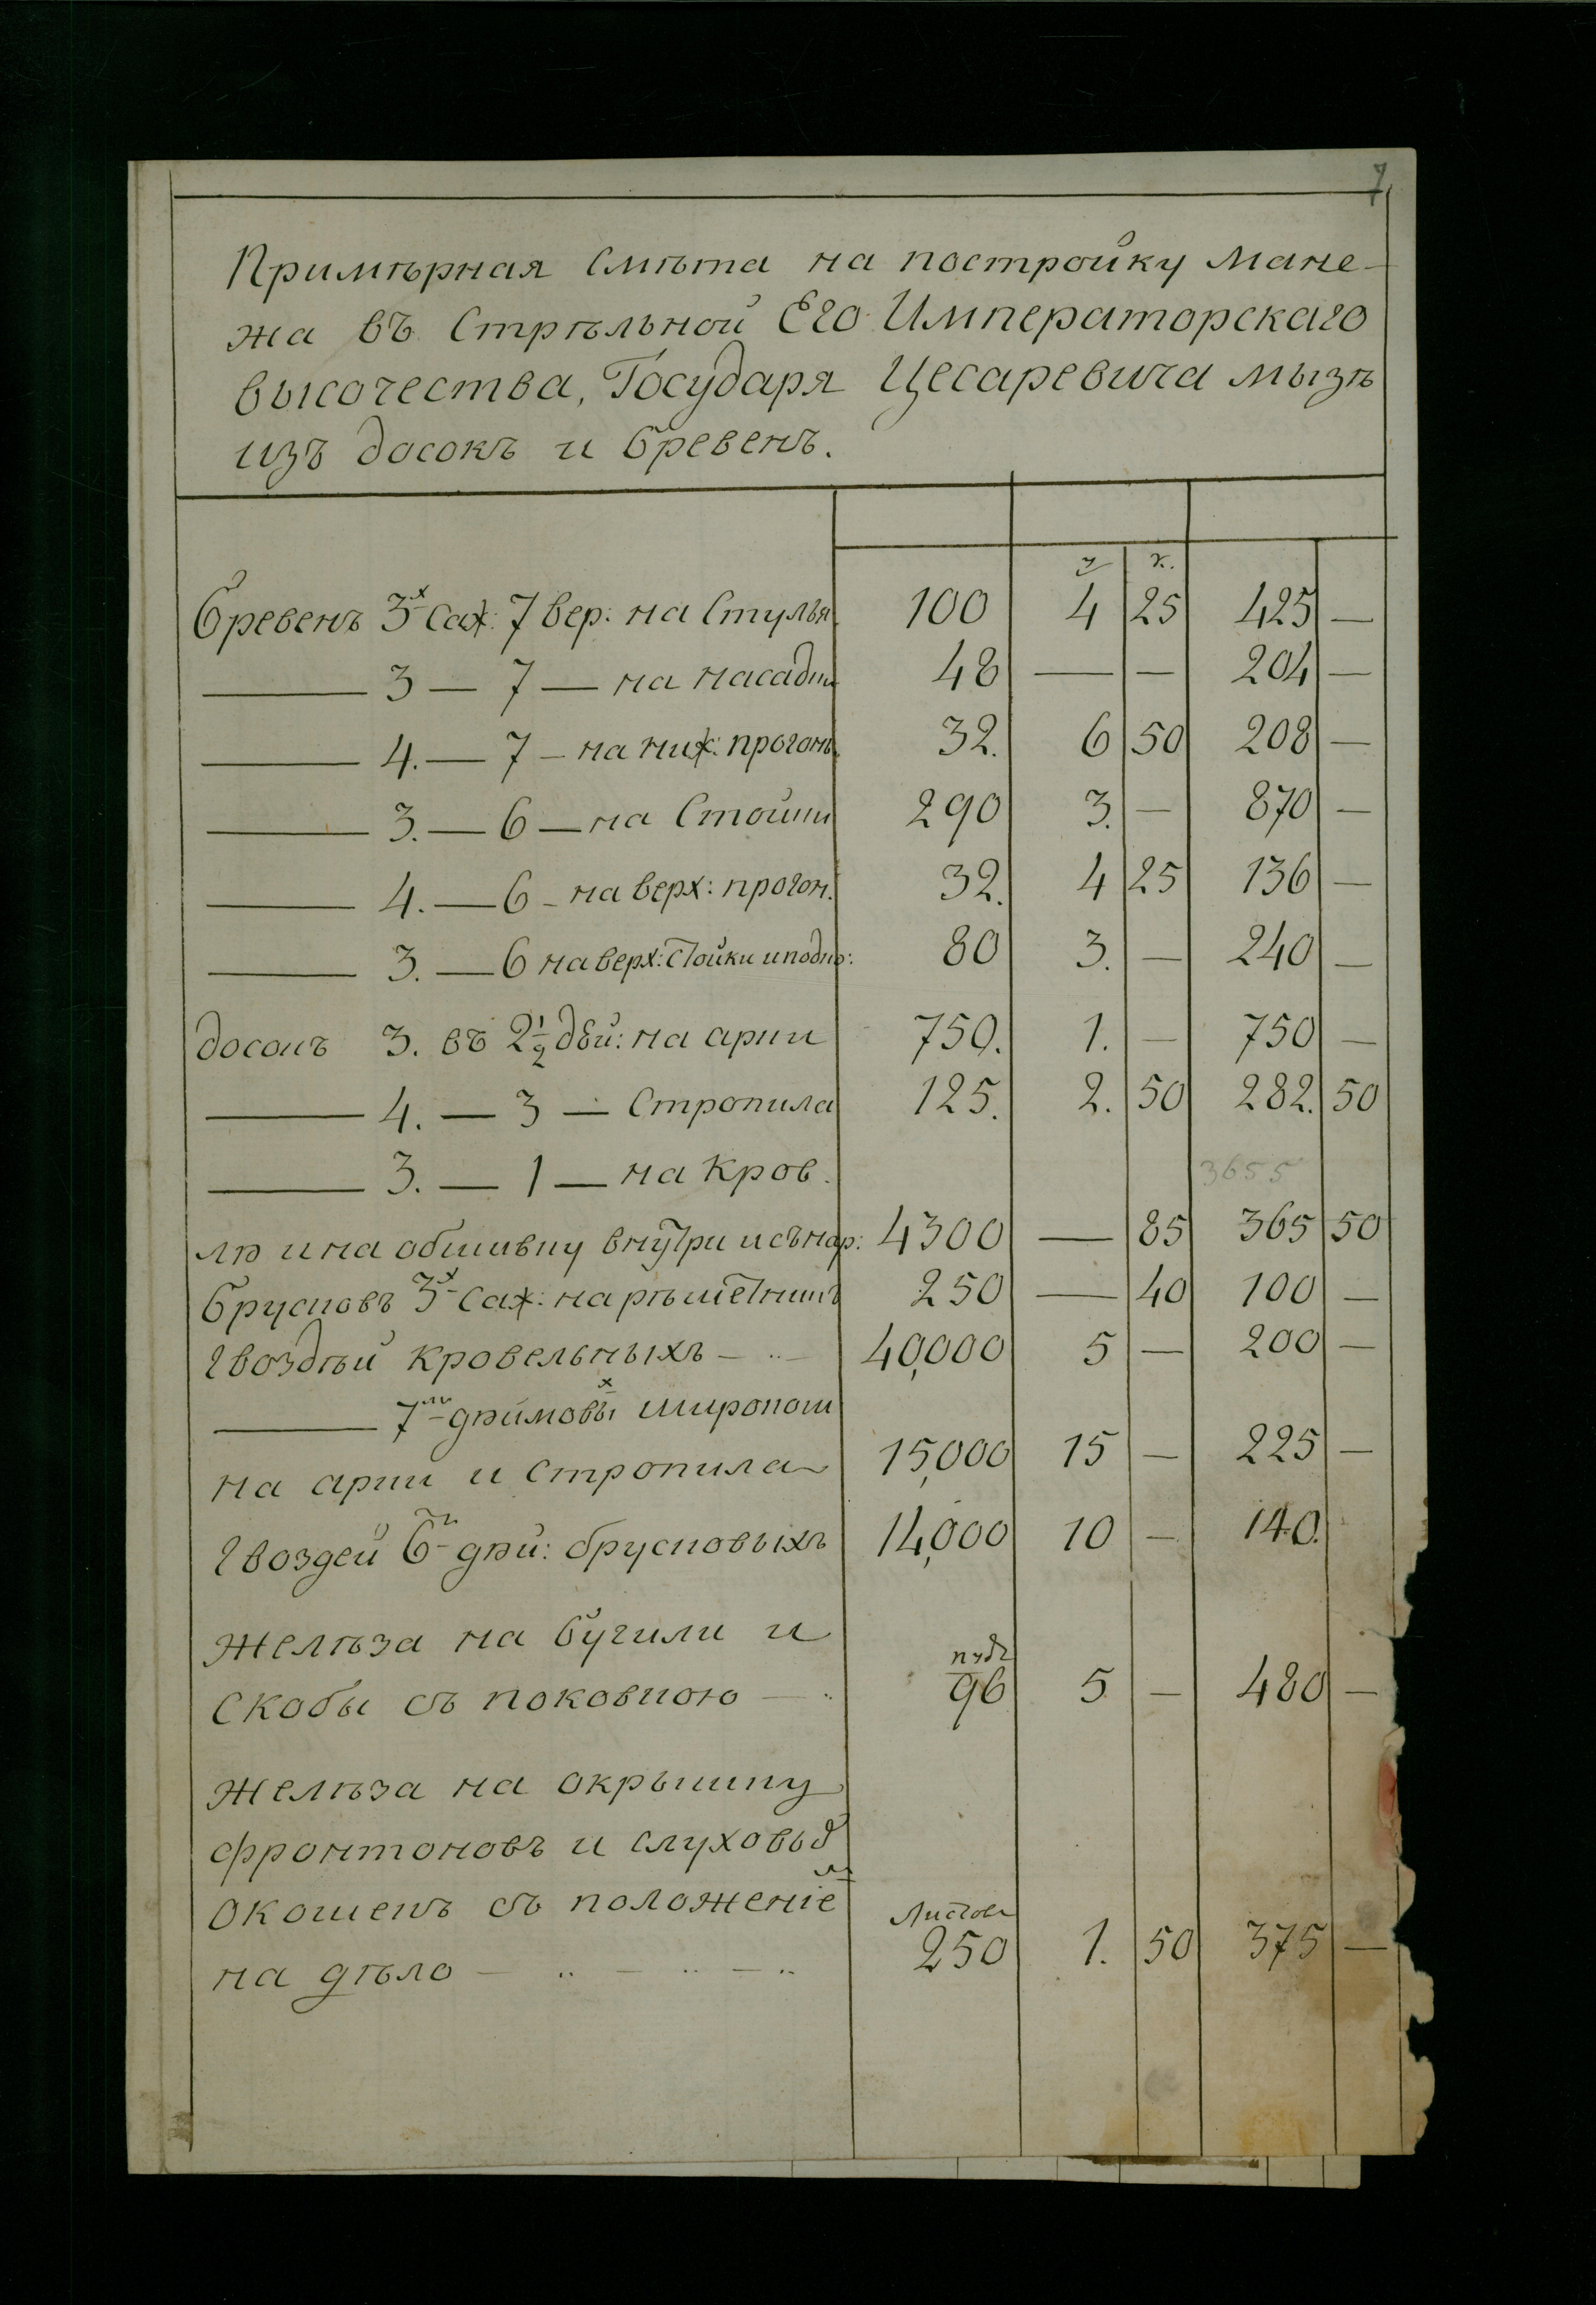 7
Примѣрная Смѣта на постройку Мане-
жа въ Стрѣльной Его Императорскаго
высочества, Государя Цесаревича мызѣ
изъ досокъ и бревенъ.
к.
Бревенъ 3х Саж: 7 вер: на Стулья 100 4 25 425 —
—— 3 — 7 — на насадки 48 — — 204 —
—— 4. — 7 — на ниж: прогонъ. 32. 6 50 208 —
—— 3. — 6 — на Стойки 290 3. — 870 —
—— 4. — 6 - на верх: прогон. 32. 4 25 136 —
—— 3. — 6 на верх: Стойки и подко: 80 3. — 240 —
досокъ 3. въ 2½ дюй: на арки 750. 1. — 750 —
—— 4. — 3 — Стропила 125. 2. 50 282. 50
—— 3. — 1 — на Кров. 3655
лю и на обшивку внутри и снар: 4300 — 85 365 50
брусковъ 3х Саж: на рѣшетникъ 250 — 40 100 —
Гвоздѣй кровельныхъ — .. — 40,000 5 — 200 —
—— 7ми дюймовых широкош
на арки и Стропила 15,000 15 — 225 —
Гвоздей 6ти дюй: брусковыхъ 14,000 10 — 140.
Желѣза на бугили и пудъ
Скобы съ поковкою — .. 96 5 — 480 —
Желѣза на окрышку
фронтоновъ и слуховых
окошекъ съ положеніем Листовъ
на дѣло — .. — .. — .. 250 1. 50 375 —